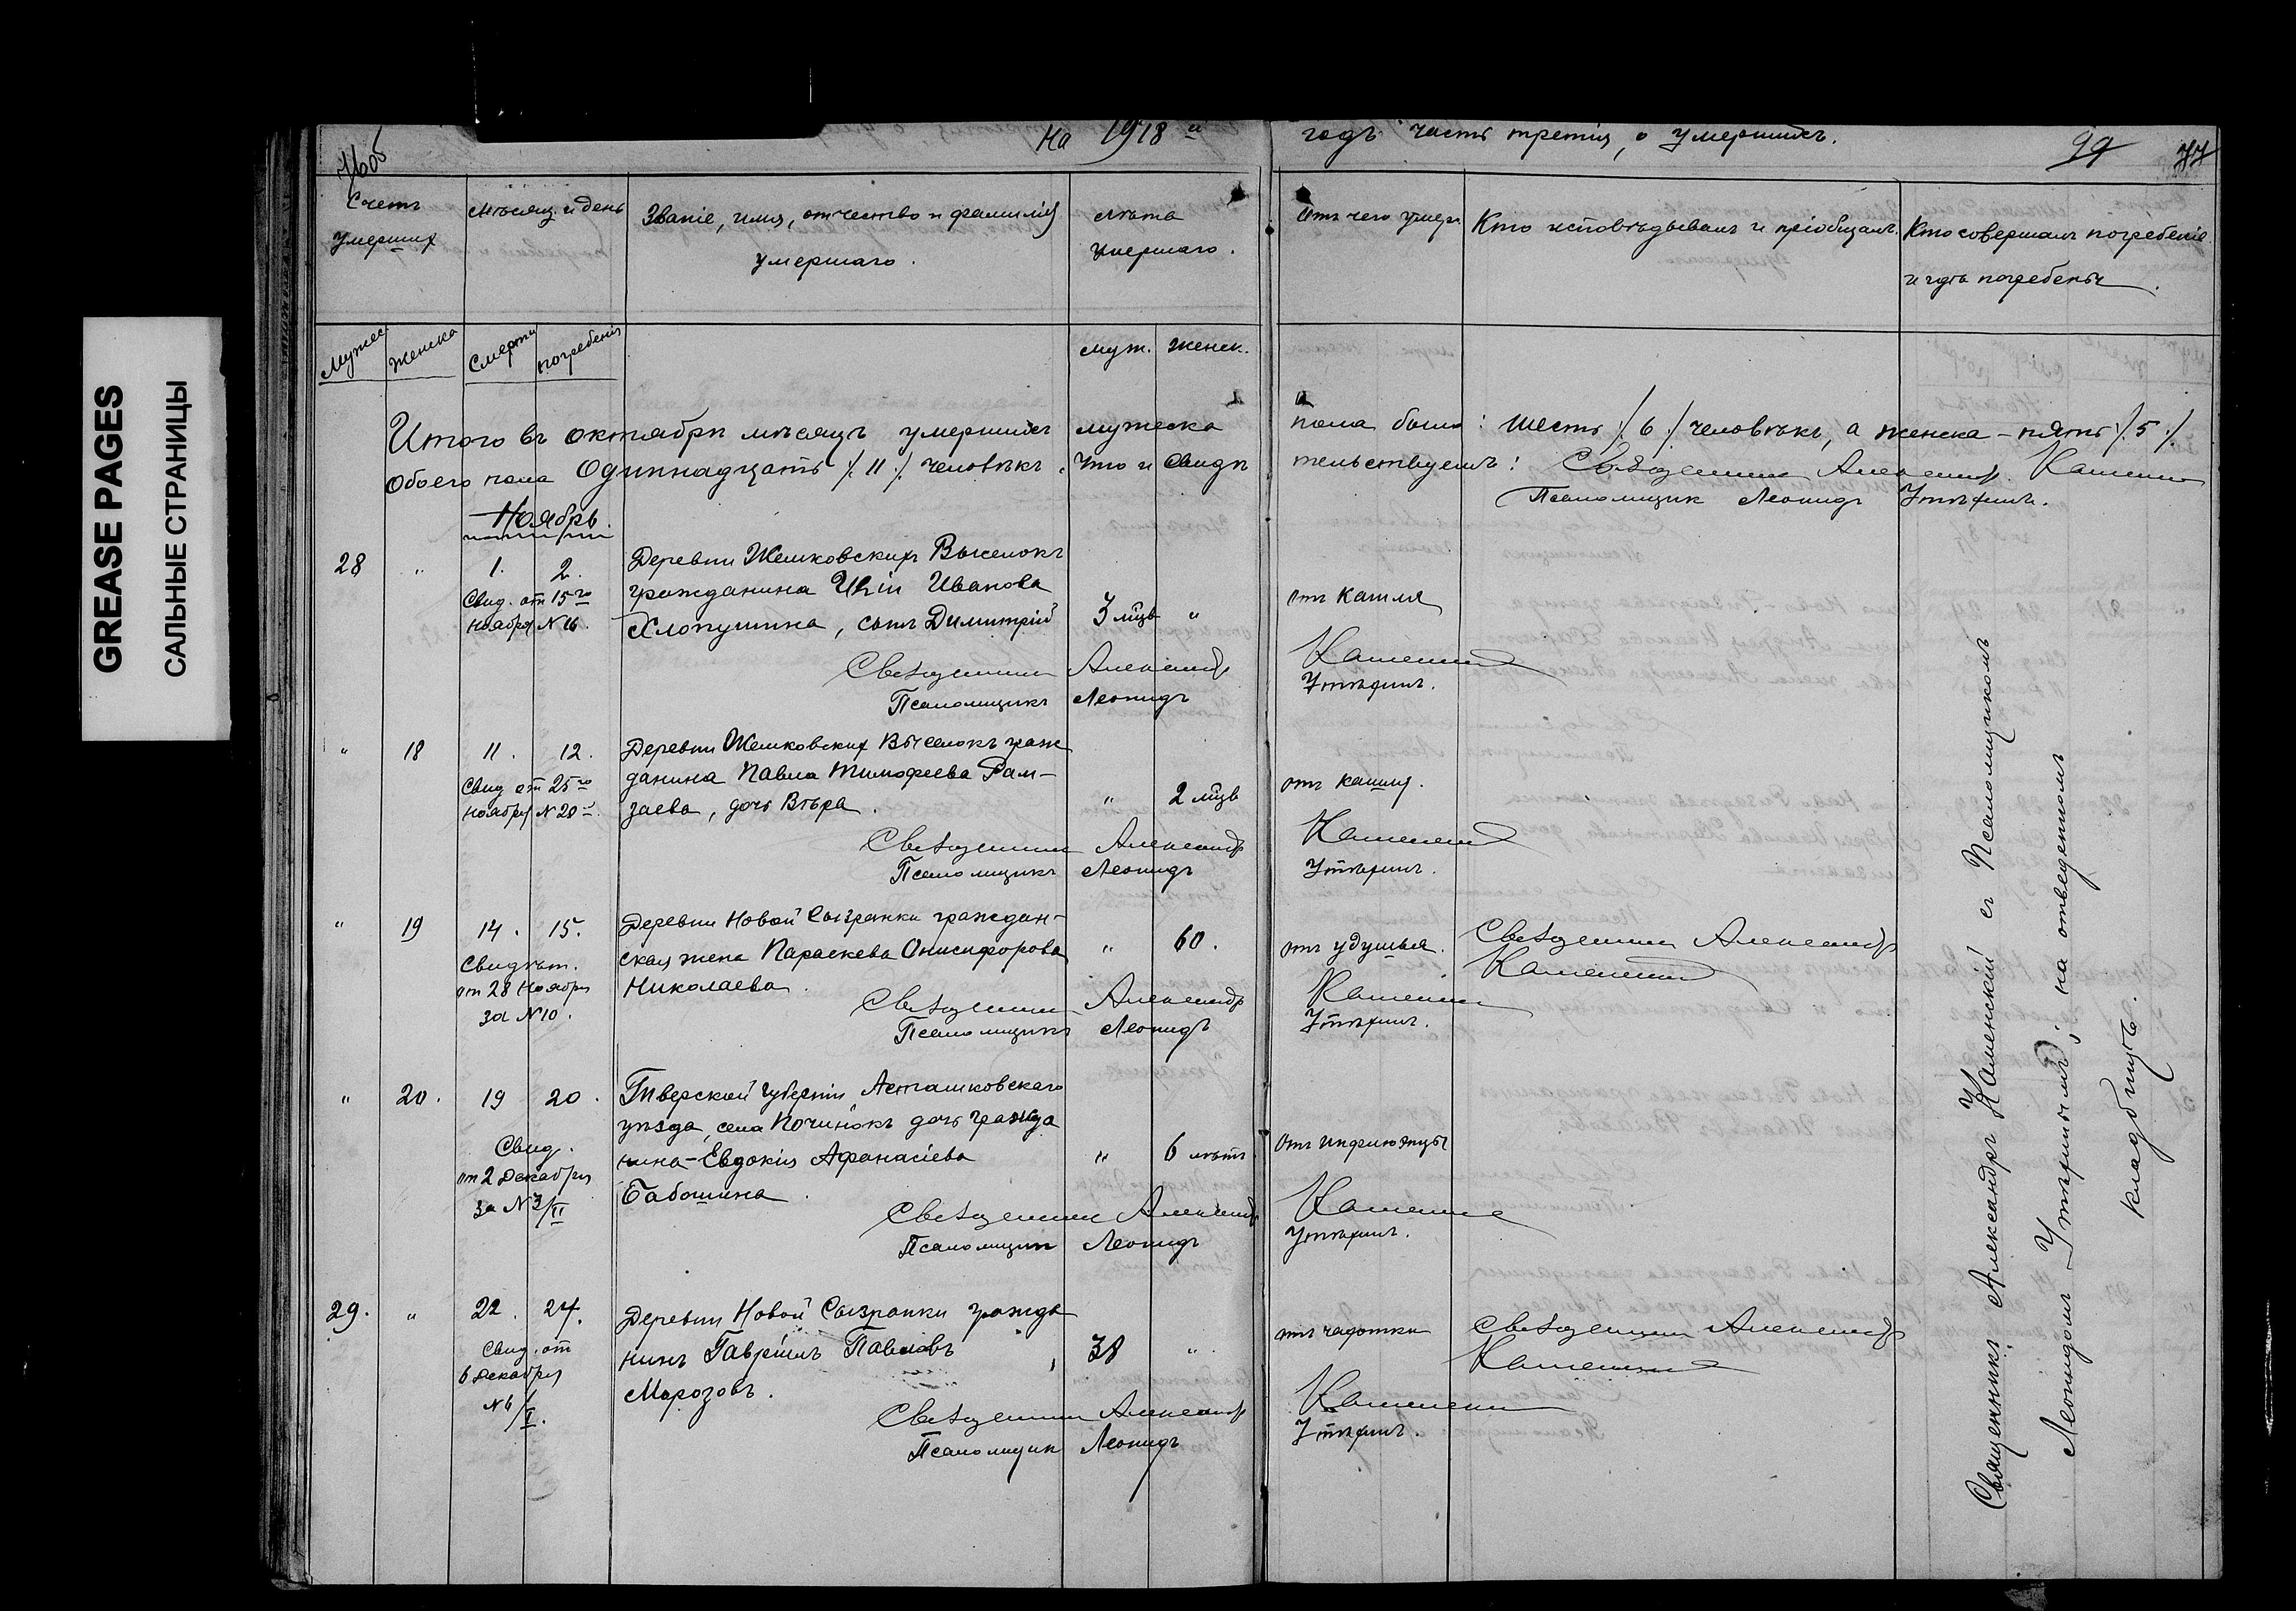 GREASE PAGES
САЛЬНЫЕ СТРАНИЦЫ
76об
На 1918 й годъ часть третія, о умершихъ.
99 77
Счетъ умершихъ
Мѣсяц. и день
Званіе, имя, отчество и фамилія умершаго.
лѣта умершаго.
Отъ чего умеръ
Кто исповѣдывалъ и пріобщалъ.
Кто совершалъ погребеніе и гдѣ погребены.
Мужес. Женска Смерти погребенія муж. женск.
Итого въ октябрѣ мѣсяцѣ умершихъ мужеска пола было: шесть /:6:/ человѣкъ, а женска – пять /:5:/
Обоего пола Одиннадцать /:11:/ человѣкъ. Что и свидѣтельствуемъ: Священникъ Александръ Каменскій
Псаломщик Леонидъ Утѣхинъ.
Ноябрь.
28 " 1. 2. Деревни Жемковскихъ Выселокъ
Свид. от 15го гражданина Иліи Иванова
ноября №16. Хлопушина, сынъ Димитрій 3 мцв " отъ кашля
Священникъ Александръ Каменскій
Псаломщикъ Леонидъ Утѣхинъ.
" 18 11. 12. Деревни Жемковских Выселокъ граж
Свид от 25го данина Павла Тимофеева Рам–
ноября №28 заева, дочь Вѣра. " 2 мцв отъ кашля.
Священникъ Александръ Каменскій
Псаломщикъ Леонидъ Утѣхинъ.
" 19 14. 15. Деревни Новой Сызранки граждан–
Свидѣт. ская жена Параскева Онисифорова " 60. отъ удушья. Священникъ Александръ
от 28 Ноября Николаева. Каменскій
за №10. Священникъ Александръ Каменскій
Псаломщикъ Леонидъ Утѣхинъ.
" 20. 19 20. Тверской губерніи Асташковскаго
уѣзда, села Починокъ дочь гражда
Свид. нина – Евдокія Афанасіева " 6 лѣтъ Отъ инфлюэнцы
от 2 Декабря Бабошина.
за № 3/II
Священникъ Александръ Каменскій
Псаломщикъ Леонидъ Утѣхинъ.
29. " 22. 24. Деревни Новой Сызранки гражда
Свид. от нинъ Гавріилъ Павловъ 38 " отъ чахотки Священникъ Александръ
6 Декабря Морозовъ. Каменскій
№ 6/I.
Священникъ Александръ Каменскій
Псаломщик Леонидъ Утѣхинъ.
Священникъ Александръ Каменскій съ Псаломщикомъ
Леонидомъ Утѣхинымъ; на отведенномъ
кладбищѣ.